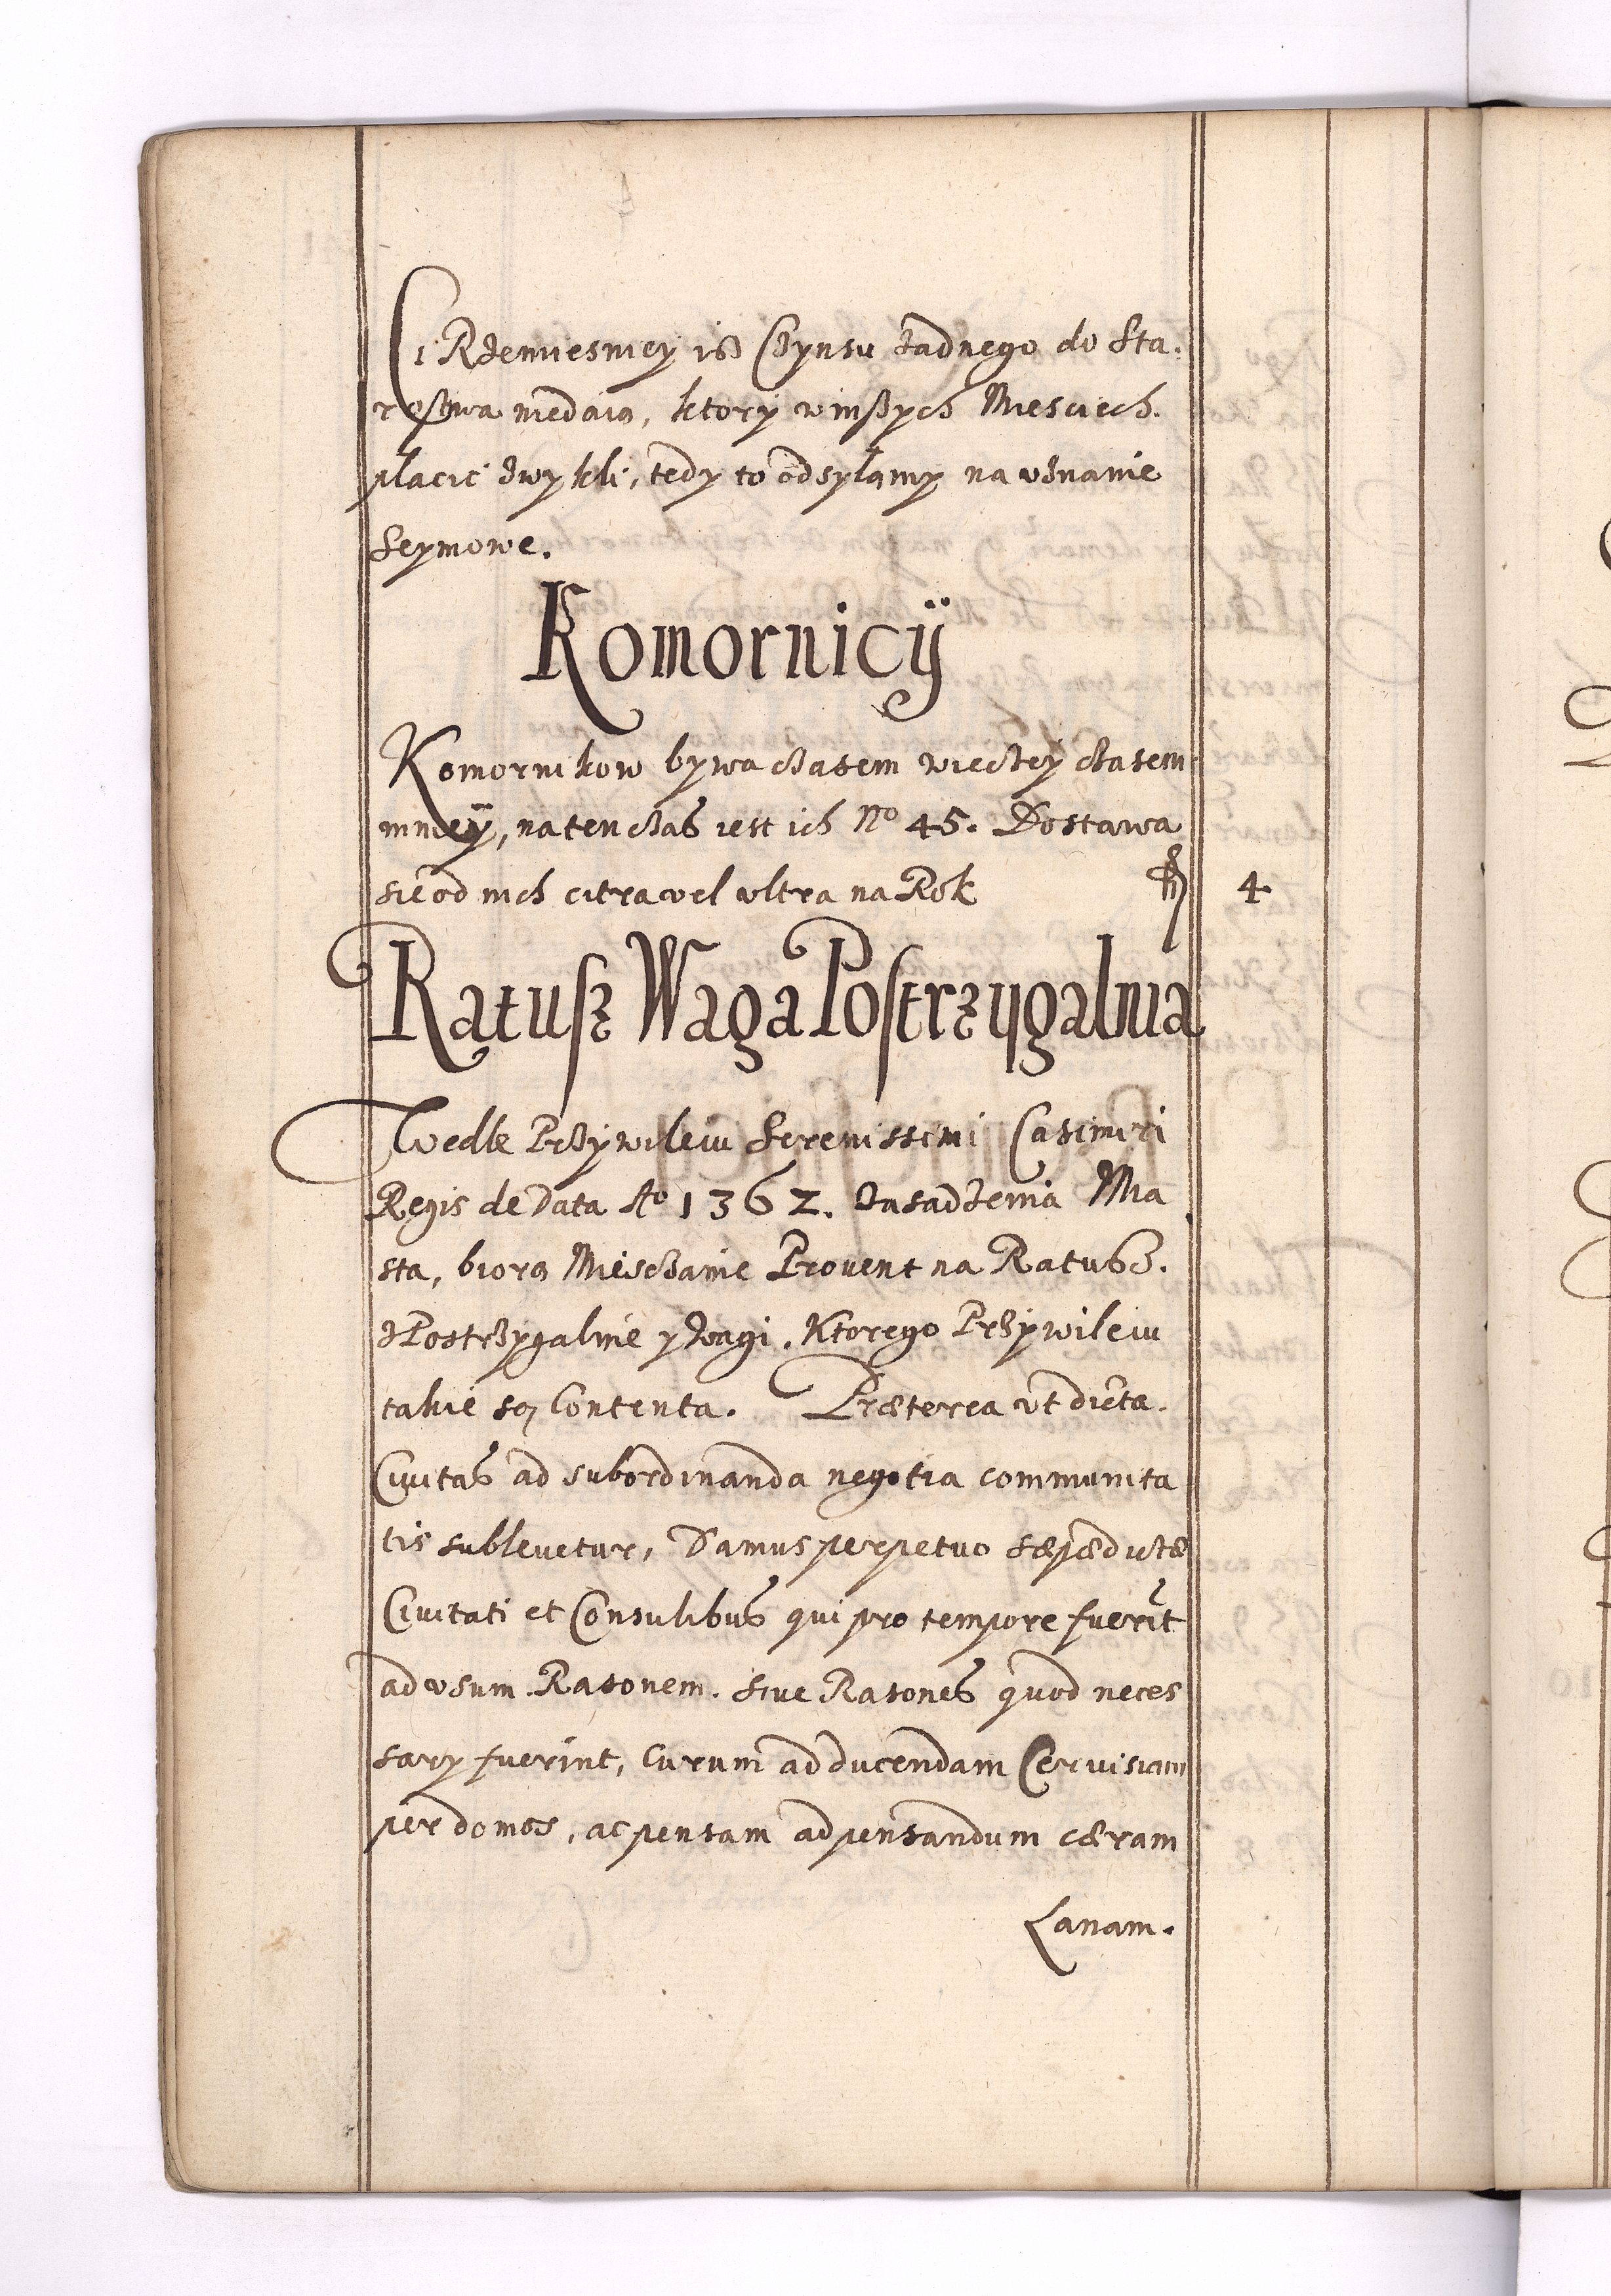 Ci Rzemiesnicy isz Czynsu zadnego do Sta:
rostwa niedaią, ktory winszych Miesciech.
płacic zwykli, tedy to odsyłamy na vznanie
Seymowe.
Komornicÿ
Komornikow bywa czasem wiecżey czasem
mniey, natenczas iest ich No 45. Dostawa
sie od nich citra vel vltra na Rok 4
Ratusz Waga Postrzygalnia
Wedle Przywileiu Serenissimi Casimiri
Regis de Data Ao 1362. Zasadzenia Mia
sta, biorą Miesczanie Prouent na Ratusz.
z Postrzygalnie y Wagi. Ktorego Przywileiu
takie są Contenta. Præterea vt dicta.
Ciuitas ad subordinanda negotia communita
tis subleuetur, Damus perpetuo sæpædictæ
Ciuitati et Consulibus qui pro tempore fuerit
ad vsum Rasonem. siue Rasones quod neces
sary fuerint, Curum ad ducendam Ceruisiam
per domos, ac pensam ad pensandum cæram
Lanam.